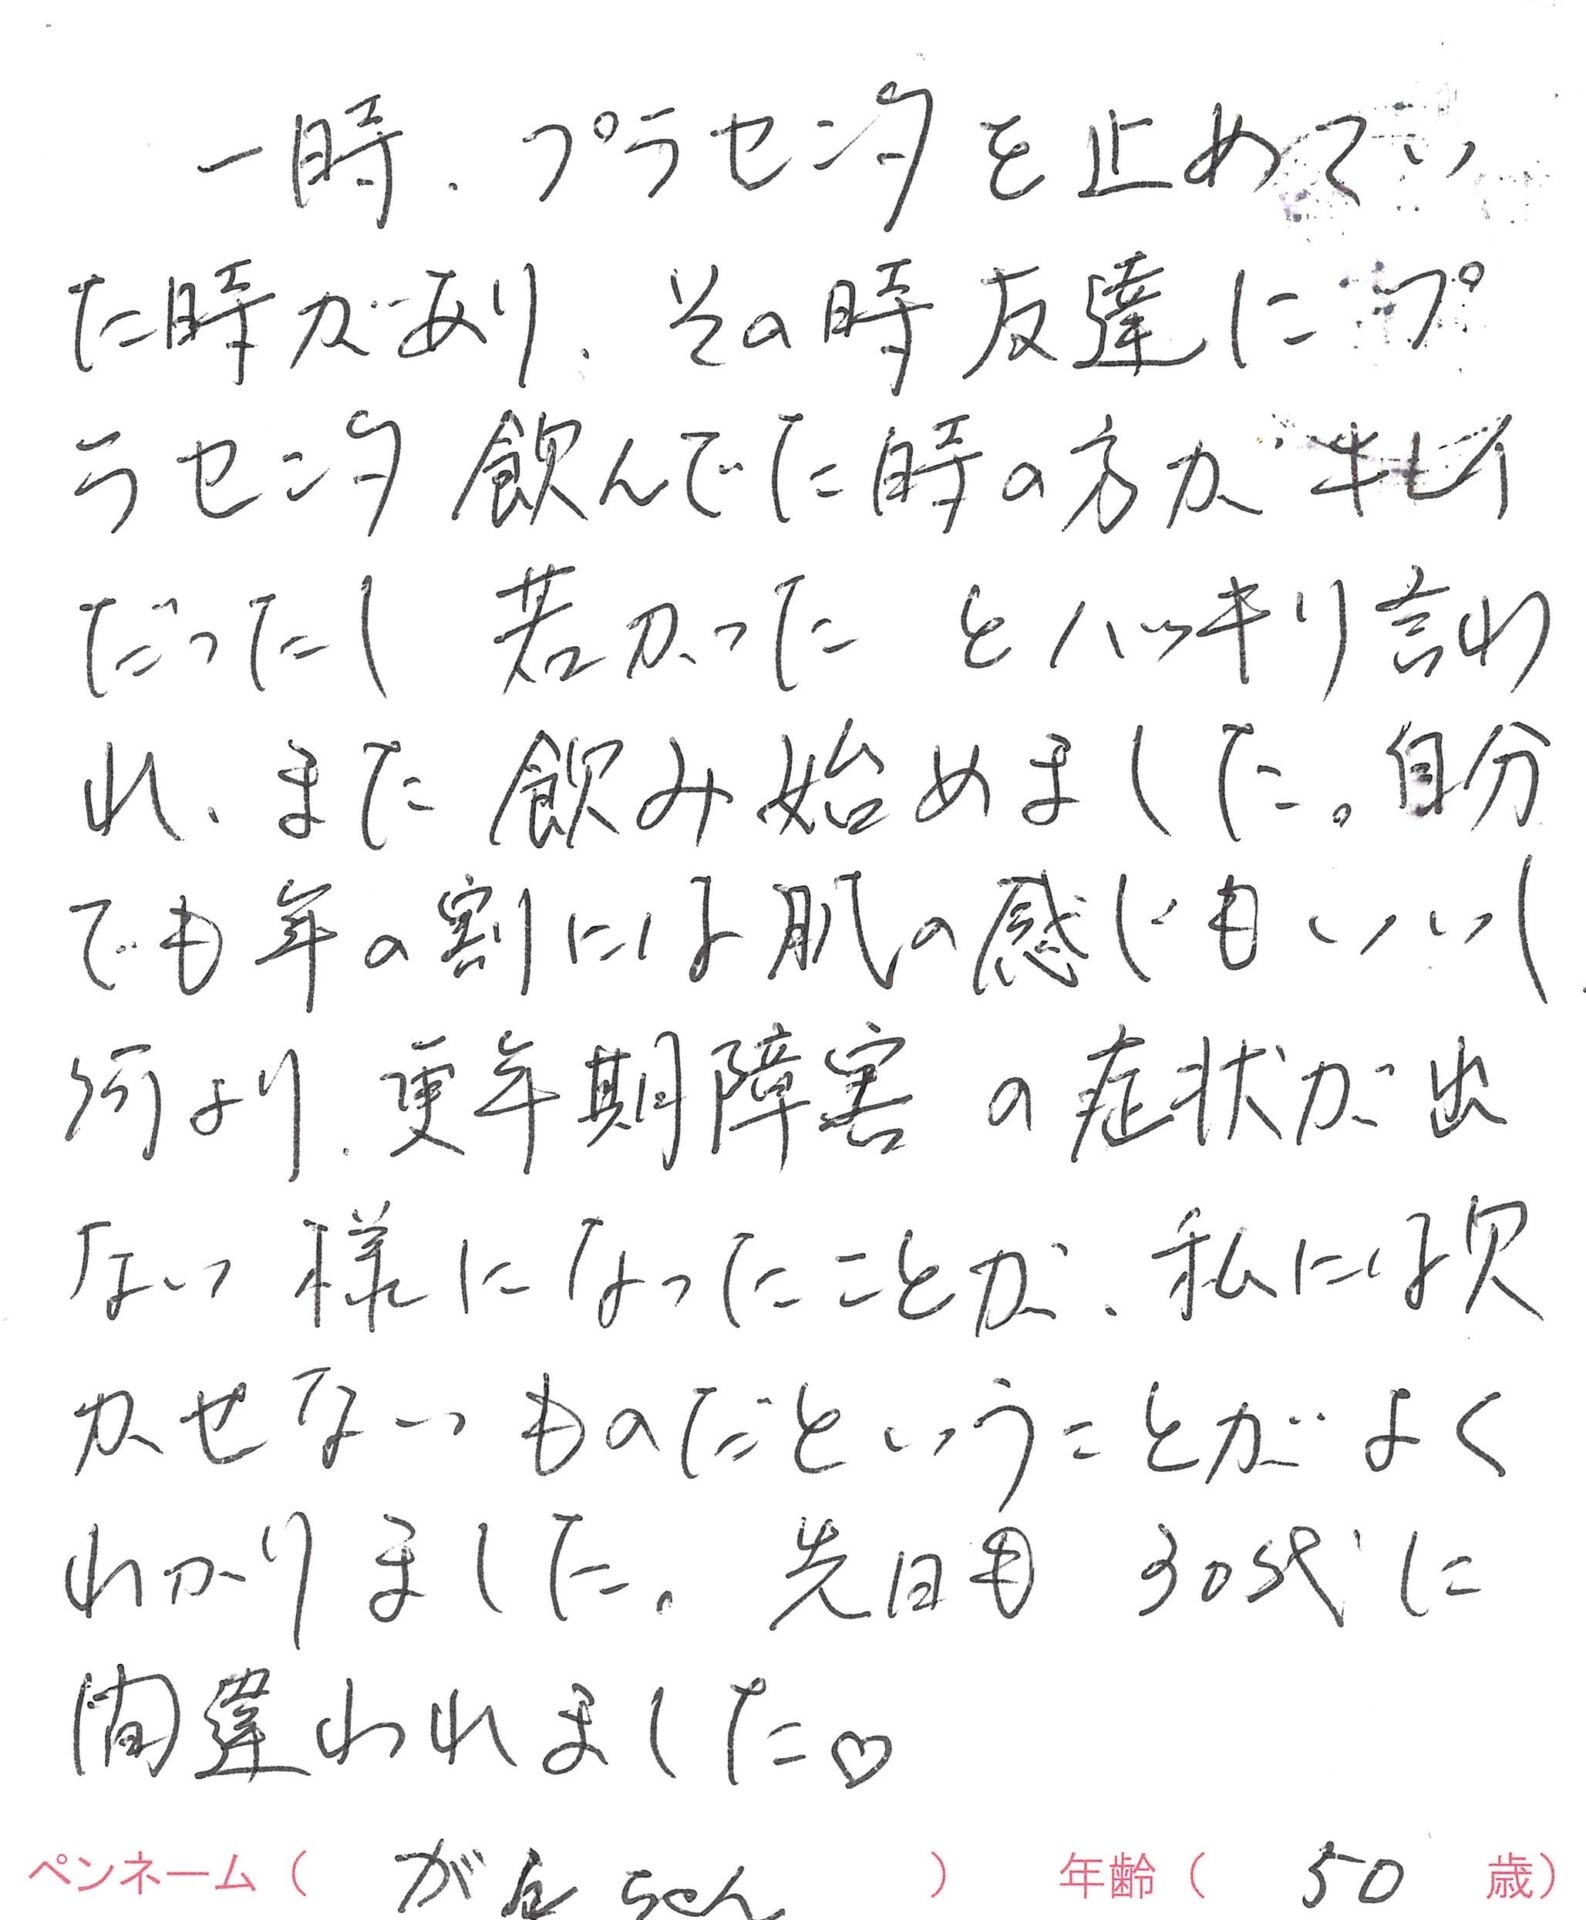 一時、プラセンタを止めてい
た時があり、その時友達にプ
ラセンタ飲んでた時の方がキレイ
だったし 若かった とハッキリ言わ
れ、また飲み始めました。自分
でも年の割には肌の感じもいいし
何より、更年期障害の症状が出
ない様になったことが、私には欠
かせないものだということがよく
わかりました。先日も 30代に
間違われました♡
ペンネーム( ちゃん ) 年齢( 50 歳)